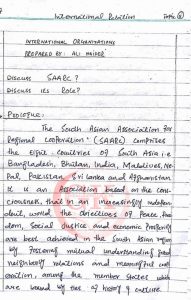 International Relation
INTERNATIONAL ORGANISATIONS
PREPARED BY: ALI HAIDER
DISCUSS SAARC?
DISCUSS ITS ROLE?
PROLOGUE:
The South Asian Association for
Regional cooperation (SAARC) comprises
the Eight countries of South Asia i.e
Bangladesh, Bhutan, India, Maldives, Ne-
pal, Pakistan, Sri Lanka and Afghanistan.
It is an Association based on the con-
ciousness, that in an increasingly
world, the objectives of Peace, free-
dom, Social Justice and economic Prosperity
are best achieved in the South Asian region
by fostering mutual understanding, good
neighbourly relations and meaningful coop-
eration, among the member states which
are bound by ties of history & culture.